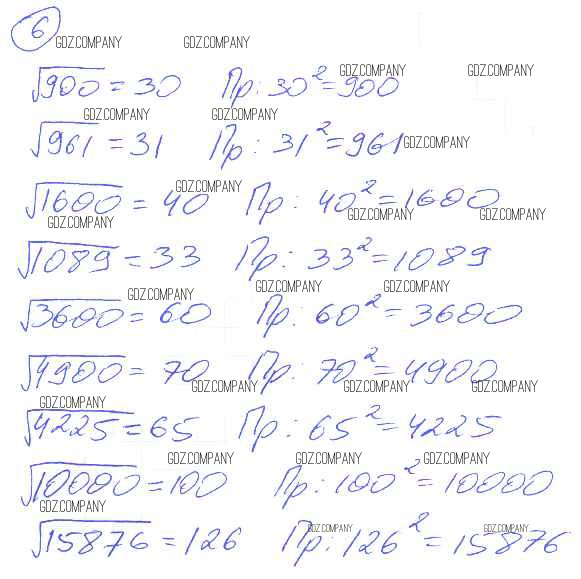 6
GDZ.COMPANY GDZ.COMPANY
GDZ.COMPANY GDZ.COMPANY
√900 = 30 Пр: 30² = 900
GDZ.COMPANY GDZ.COMPANY
√961 = 31 Пр: 31² = 961 GDZ.COMPANY
GDZ.COMPANY
√1600 = 40 Пр: 40² = 1600
GDZ.COMPANY GDZ.COMPANY GDZ.COMPANY
√1089 = 33 Пр: 33² = 1089
GDZ.COMPANY GDZ.COMPANY GDZ.COMPANY
√3600 = 60 Пр: 60² = 3600
√4900 = 70 Пр: 70² = 4900
GDZ.COMPANY GDZ.COMPANY GDZ.COMPANY
GDZ.COMPANY
√4225 = 65 Пр: 65² = 4225
GDZ.COMPANY GDZ.COMPANY GDZ.COMPANY
√10000 = 100 Пр: 100² = 10000
GDZ.COMPANY
GDZ.COMPANY GDZ.COMPANY
√15876 = 126 Пр: 126² = 15876